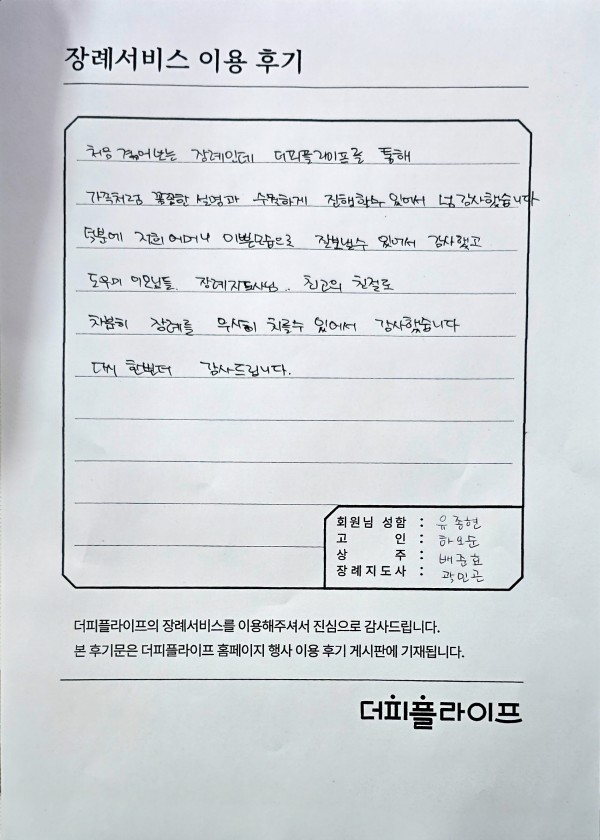 장례서비스 이용 후기
처음 겪어보는 장례인데 더피플라이프를 통해
가족처럼 꼼꼼한 설명과 수월하게 진행할수 있어서 넘 감사했습니다
덕분에 저희 어머니 이쁜모습으로 잘보낼수 있어서 감사했고
도우미 이모님들. 장례지도사님.. 최고의 친절로
차분히 장례를 무사히 치를수 있어서 감사했습니다
다시 한번더 감사드립니다.
회원님 성함 : 유종현
고 인 : 하오순
상 주 : 배준효
장례지도사 : 곽민근
더피플라이프의 장례서비스를 이용해주셔서 진심으로 감사드립니다.
본 후기문은 더피플라이프 홈페이지 행사 이용 후기 게시판에 기재됩니다.
더피플라이프